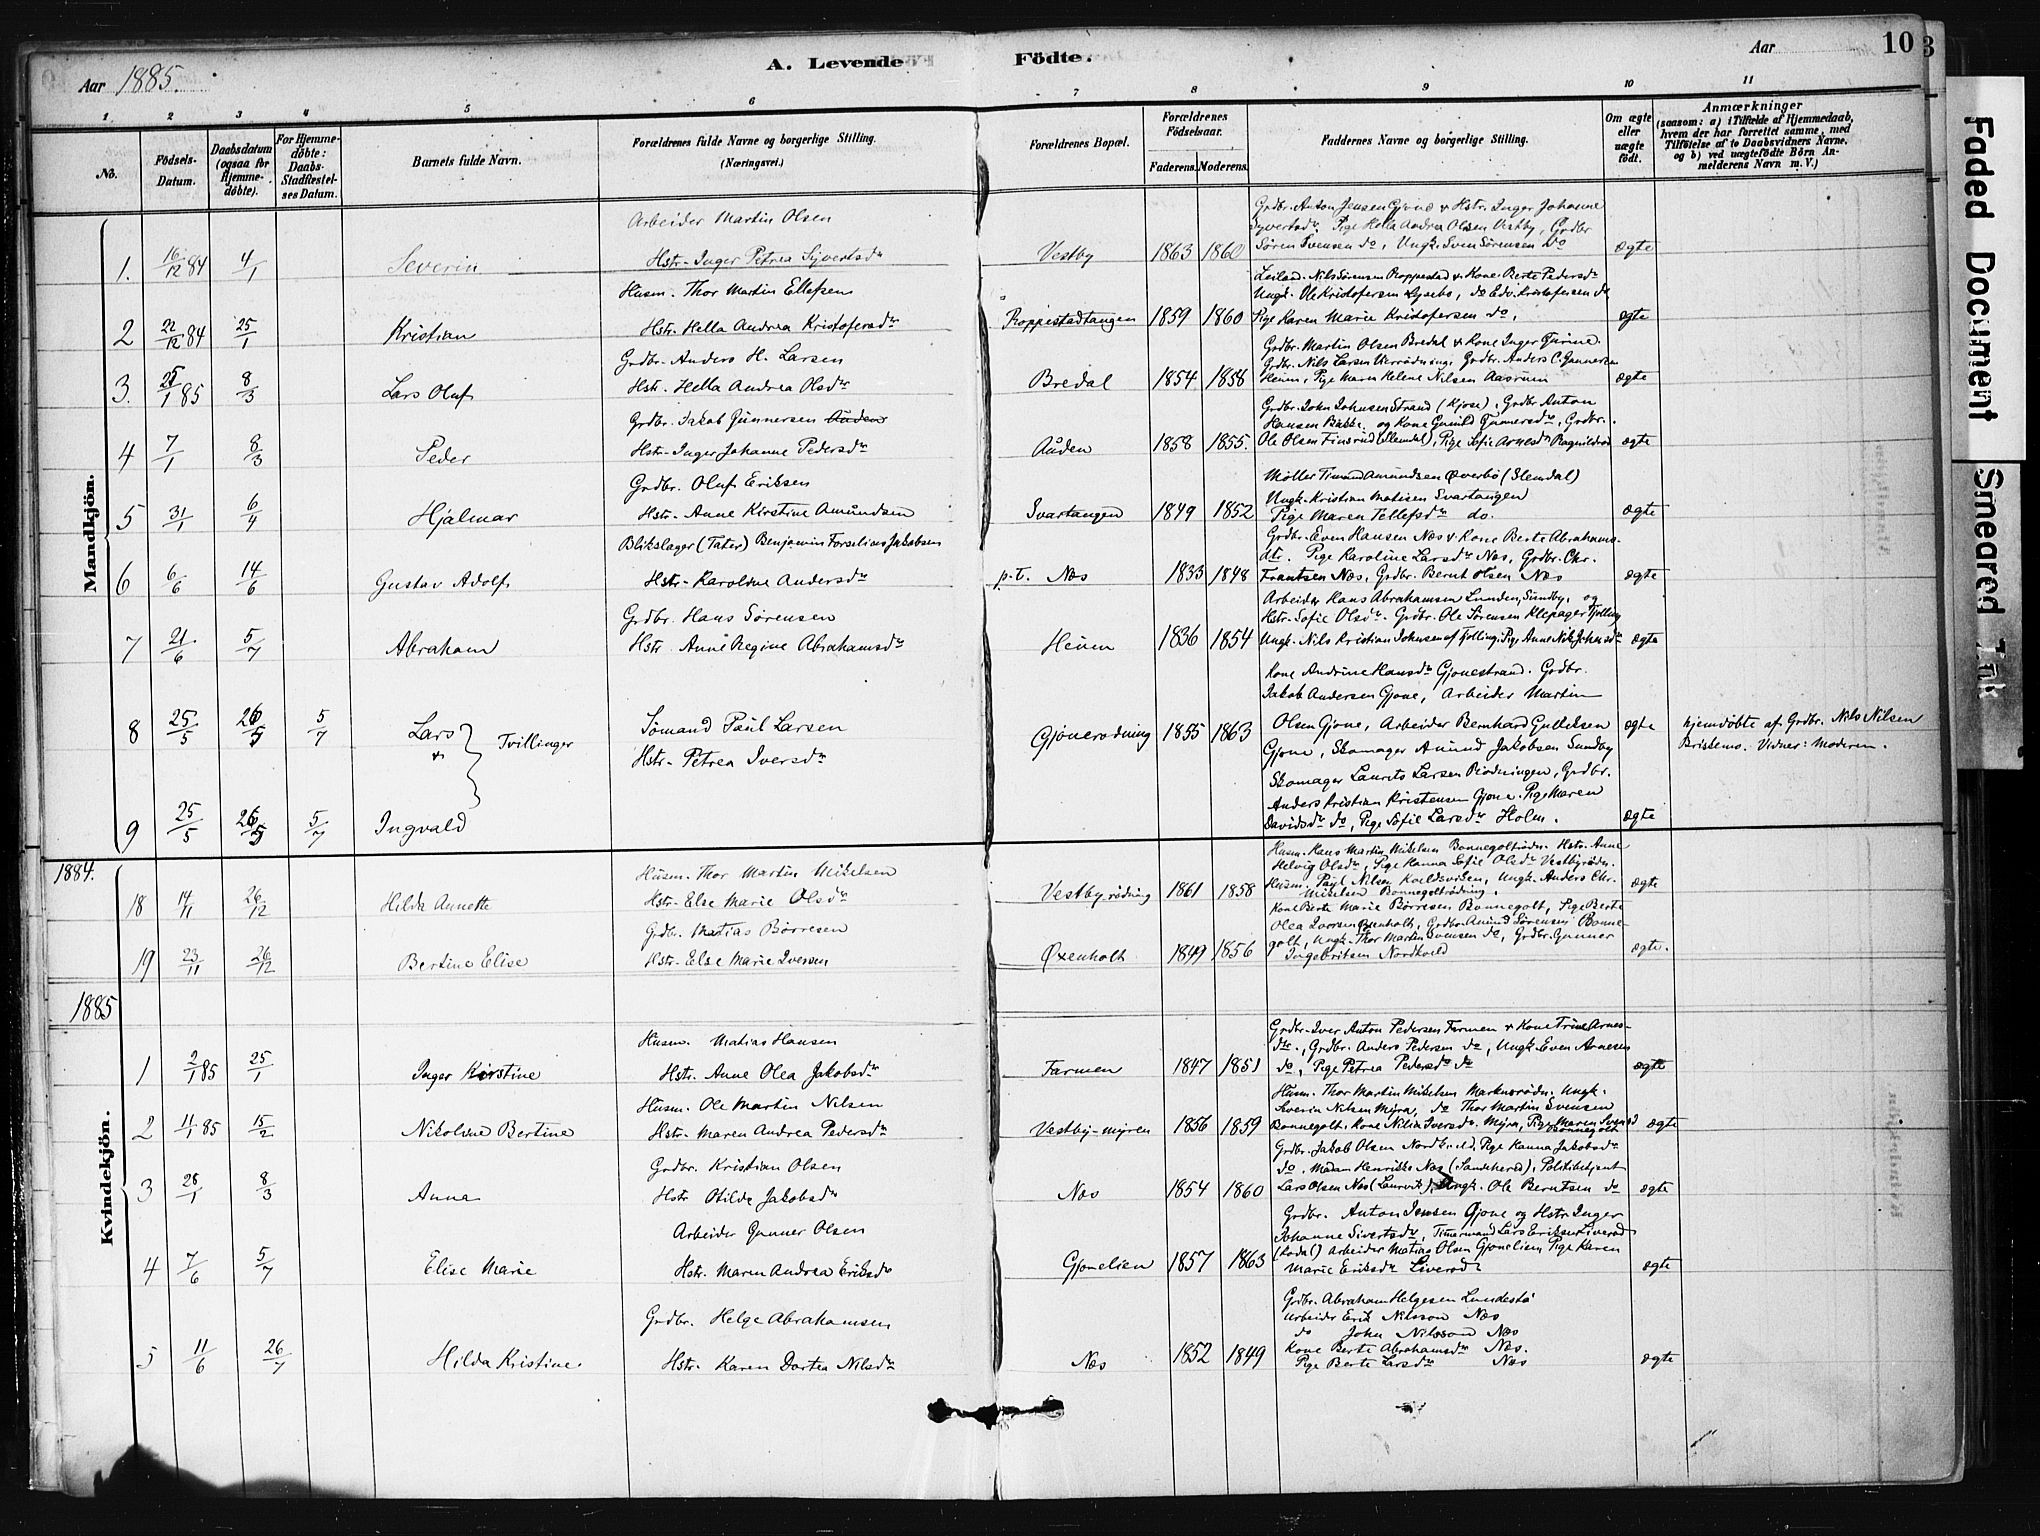 Aar 1885.
A. Levende Födte.
Aar
10
3
Faded Document
Smeared Ink
1 2 3 4 5 6 7 8 9 10 11
No.
Födsels-Datum.
Daabsdatum (ogsaa for Hjemme-döbte).
For Hjemme-döbte: Daabs Stadfæstel-ses Datum.
Barnets fulde Navn.
Forældrenes fulde Navne og borgerlige Stilling.
(Næringsvei.)
Forældrenes Bopæl.
Forældrenes Födselsaar.
Faderens. Moderens.
Faddernes Navne og borgerlige Stilling.
Om ægte eller uægte födt.
Anmærkninger
(saasom: a) i Tilfælde af Hjemmedaab, hvem der har forrettet samme, med Tilföielse af to Daabsvidners Navne, og b) ved uægtefödte Börn Anmelderens Navn m. V.)
Mandkjön.
Arbeider Martin Olsen
Grdbr. Anton Jensen Gjone & Hstr. Inger Johanne
Syvertsdr. Pige Hella Andrea Olsen Vestby, Grdbr
1. 16/12 84 4/1 Severin Hstr. Inger Petrea Syvertsdr Vestby 1863 1860 Sören Svensen do, Ungk. Sven Sörensen do ægte
Husm. Thor Martin Ellefsen
Leiland. Nils Sörensen Roppestad & Kone Berte Pedersdr
Ungk. Ole Kristofersen Lysebo, do Edv. Kristofersen do
2 22/12 84 25/1 Kristian Hstr. Hella Andrea Kristofersdr Roppestadtangen 1859 1860 Pige Karen Marie Kristofersen do, ægte
Grdbr. Anders H. Larsen
Grdbr. Martin Olsen Bredal & Kone Inger
Grdbr. Nils Larsen, Grdbr. Anders C. Gunnersen
3. 25/1 85 8/3 Lars Oluf Hstr. Hella Andrea Olsdr Bredal 1854 1858 Heium, Pige Maren Helene Nilsen Aasrum ægte
Grdbr. Jakob Gunnersen Auden
Grdbr. John Johnsen Strand (Kjose), Grdbr Anton
Hansen Bakke og Kone Gunild Gunnersdr, Grdbr.
4 7/1 8/3 Peder Hstr. Inger Johanne Pedersdr Auden 1858 1855. Ole Olsen Finsrud (Slemdal), Pige Sofie Arnesdr ægte
Grdbr. Oluf Eriksen
Möller Amundsen Överbö (Slemdal)
Ungk. Kristian Matisen Svartangen
5 31/1 6/4 Hjalmar Hstr. Anne Kirstine Amundsen Svartangen 1849 1852 Pige Maren Tellefsdr do. ægte
Blikslager (Tater) Benjamin Forselius Jakobsen
Grdbr. Even Hansen Næs & Kone Berte Abrahams-
dtr. Pige Karoline Larsdr Næs, Grdbr. Chr.
6 6/6 14/6 Gustav Adolf Hstr. Karoline Andersdr p.t. Næs 1833 1848 Frantsen Næs, Grdbr. Bernt Olsen Næs ægte
Grdbr. Hans Sörensen
Arbeider Hans Abrahamsen Lunden, Sundby, og
Hstr. Sofie Olsdr. Grdbr. Ole Sörensen Klepager Tjölling
7 21/6 5/7 Abraham Hstr. Anne Regine Abrahamsdr Heium 1836 1854 Ungk. Nils Kristian Johnsen af Tjölling, Pige Anne ægte
Kone Andrine Hansdr Gjonestrand. Grdbr.
Jakob Andersen Gjone, Arbeider Martin
8 25/5 26/5 5/7 Lars & Tvillinger Sömand Paul Larsen Gjonerödning 1855 1863 Olsen Gjone, Arbeider Bernhard Gulliksen ægte hjemdöbte af Grdbr. Nils Nilsen
Hstr. Petrea Iversdr Gjone, Skomager Amund Jakobsen Sundby Briskemo. Vidner: Moderen.
Skomager Laurits Larsen Rödningen, Grdbr.
Anders Kristian Kristensen Gjone. Pige Maren
9 25/5 26/5 5/7 Ingvald Davidsdr do, Pige Sofie Larsdr Holm. ægte
1884.
Kvindekjön.
Husm. Thor Martin Mikelsen
Husm. Hans Martin Mikelsen Bonnegoltrödn. Hstr. Anne
Helvig Olsdr, Pige Hanna Sofie Olsdr Vestbyrödn.
18 14/11 26/12 Hilda Annette Hstr. Else Marie Olsdr Vestbyrödning 1861 1858 Husm. Paul Nilsen, Ungk. Anders Chr. ægte
Mikelsen Bonnegoltrödning.
Grdbr. Matias Börresen
Kone Berte Marie Börresen Bonnegolt, Pige Berte
Olea Iversen, Grdbr. Amund Sörensen Bonne-
golt, Ungk. Thor Martin Svensen do, Grdbr. Gunner
19 23/11 26/12 Bertine Elise Hstr. Else Marie Iversen Öxenholt 1849 1856 Ingebritsen Nordkveld ægte.
1885
Husm. Matias Hansen
Grdbr. Iver Anton Pedersen Farmen & Kone Trine Arnes-
dtr., Grdbr. Anders Pedersen do, Ungk. Even Arnesen
1 2/1 85 25/1 Inger Kirstine Hstr. Anne Olea Jakobsdr Farmen 1847 1851 do, Pige Petrea Pedersdr do ægte
Husm. Ole Martin Nilsen
Husm. Thor Martin Mikelsen, Ungk.
Severin Nilsen Myra, do Thor Martin Svensen
2 11/1 85 15/2 Nikoline Bertine Hstr. Maren Andrea Pedersdr Vestby-myren 1856 1859 Bonnegolt, Kone Nilia Iversdr. Myra, Pige Maren Svensd Bonnegolt ægte
Grdbr. Kristian Olsen
Grdbr. Jakob Olsen, Pige Hanna Jakobsdr
do. Madam Henrikke Næs (Sandeherred), Politibetjent
3 28/1 8/3 Anna Hstr Otilde Jakobsdr Næs 1854 1860 Lars Olsen Næs (Laurvik), Ungk. Ole Berntsen do ægte
Arbeider Gunner Olsen
Grdbr. Anton Jensen Gjone og Hstr. Inger
Johanne Sivertsdr, Tömermand Lars Eriksen Liverød
4 7/6 5/7 Elise Marie Hstr. Maren Andrea Eriksdr Gjonelien 1857 1863 (Lardal) Arbeider Matias Olsen Gjonelien, Pige Karen
Marie Eriksdr Liverød ægte
Grdbr. Helge Abrahamsen
Grdbr. Abraham Helgesen Lundestö
Arbeider Erik Nilsson Næs
do John Nilsson Næs
5 11/6 26/7 Hilda Kristine Hstr. Karen Dortea Nilsdr Næs 1852 1849 Kone Berte Abrahamsdr Næs.
Pige Berte Larsdr Næs ægte